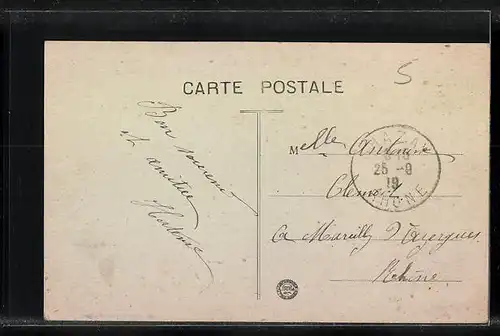 CARTE POSTALE
5
Bon souvenir
et amitiés
Melle
Clémen
a Marcilly d'Azergues
Rhône
25-9
19
RHONE